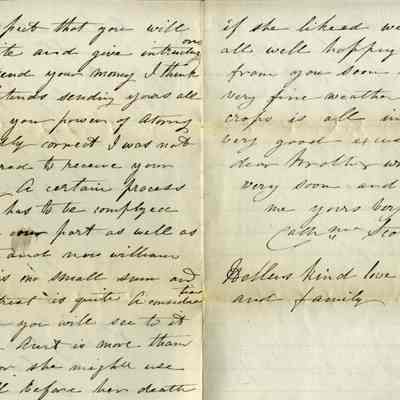 pect that you will
ite and give intructions
send your money I think
tends sending yours all
your power of Atorny
dly correct I was not
red to receive your
A certain process
has to be complyed
our part as well as
and now william
is no small sum and
treat is quite A consider
you will see to it
Aunt is more than
she might use
before her death
if she liked we
all well hoppy
from you soon
very fine weather
crops is all in
very good
dear Brother
very soon and
me yours very
Cath Mc
kind love
and family